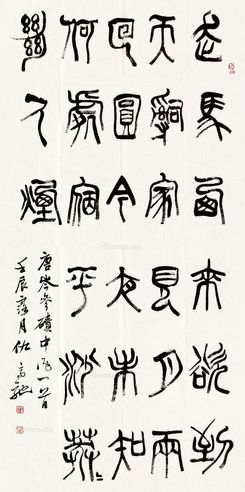 走馬西來欲到
天辭家見月兩
回圓今夜未知
何處宿平沙莽
絕人煙
唐岑參磧中作一首
壬辰月